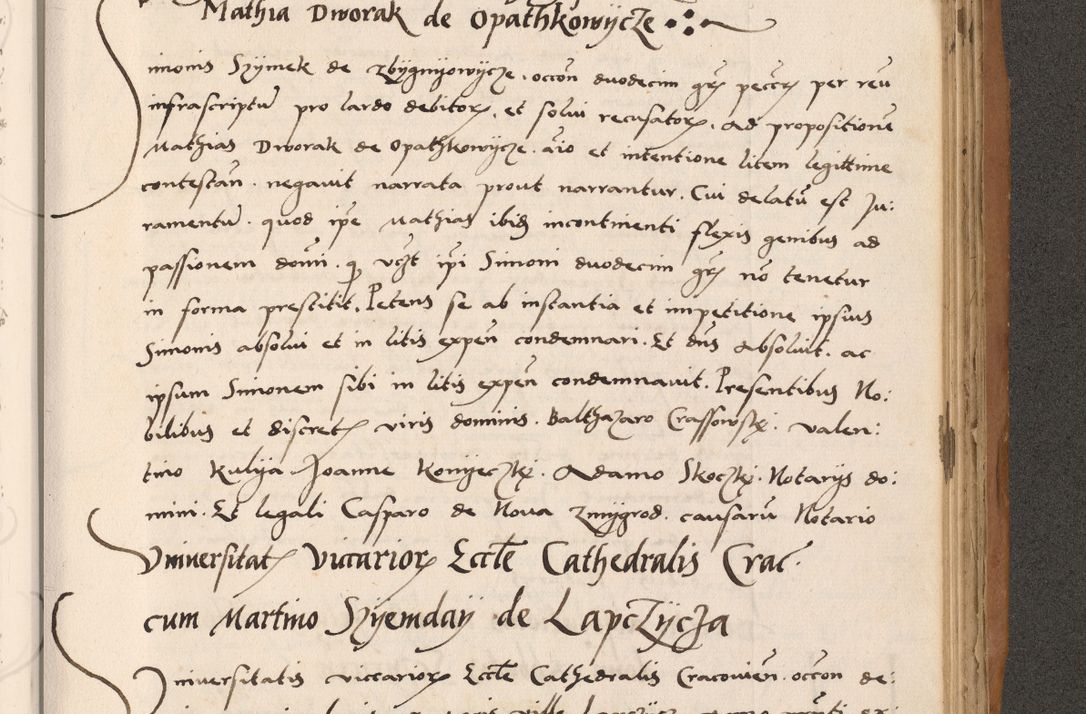 Mathia Dworak de Opathkowycze
imonis Szymek de Zbÿgnÿowÿcze. occon duodecim grs peccrs per reu
infrascriptu pro lardo debitorꝝ, et solui recusatorꝝ. Ad propositione
Mathias Dworak de Opathkowÿcze. aio et intentione litem legittime
contestan. negauit narrata prout narrantur. Cui delatu est Ju:
ramentu. quod ipe Mathias ibid incontinenti flexis genibus ad
passionem domi. q vczt ipi Simoni duodecim grs no tenetur
in forma prestitit. Petens se ab instantia et impetitione ipsius
Simonis absolui et in litis expen condemnari. Et dns Absoluit. ac
ipsum Simonem sibi in litis expen condemnauit. Presentibus No:
bilibus et discret viris dominis. Balthazaro Crassowsky. Valen:
tino Kulÿa Joanne Konÿeczky. Adamo Skoczky. Notarÿs do:
mini. Et legali Casparo de Noua Zmÿgrod. causaru Notario
Vniuersitat Viccariorꝝ Eccle Cathedralis Crac.
cum Martino Szÿemdaÿ de Lapczÿcza
niuersitatis viccariorꝝ Eccle Cathedralis Cracouien. occon de: